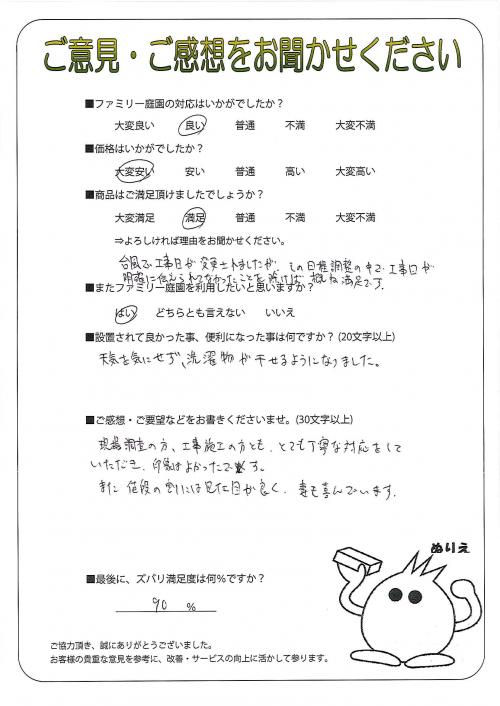 ご意見・ご感想をお聞かせください
■ファミリー庭園の対応はいかがでしたか？
大変良い　良い　普通　不満　大変不満
■価格はいかがでしたか？
大変安い　安い　普通　高い　大変高い
■商品はご満足頂けましたでしょうか？
大変満足　満足　普通　不満　大変不満
⇒よろしければ理由をお聞かせください。
台風で工事日が変更されましたが、この日程調整の中で工事日が
明確に伝えられてなかったことを除けば、概ね満足です。
■またファミリー庭園を利用したいと思いますか？
はい　どちらとも言えない　いいえ
■設置されて良かった事、便利になった事は何ですか？(20文字以上)
天気を気にせず、洗濯物が干せるようになりました。
■ご感想・ご要望などをお書きくださいませ。(30文字以上)
現場調査の方、工事施工の方とも、とても丁寧な対応をして
いただき、印象はよかったです。
また 値段の割には見た目が良く、妻も喜んでいます。
ぬりえ
■最後に、ズバリ満足度は何%ですか？
90 %
ご協力頂き、誠にありがとうございました。
お客様の貴重な意見を参考に、改善・サービスの向上に活かして参ります。